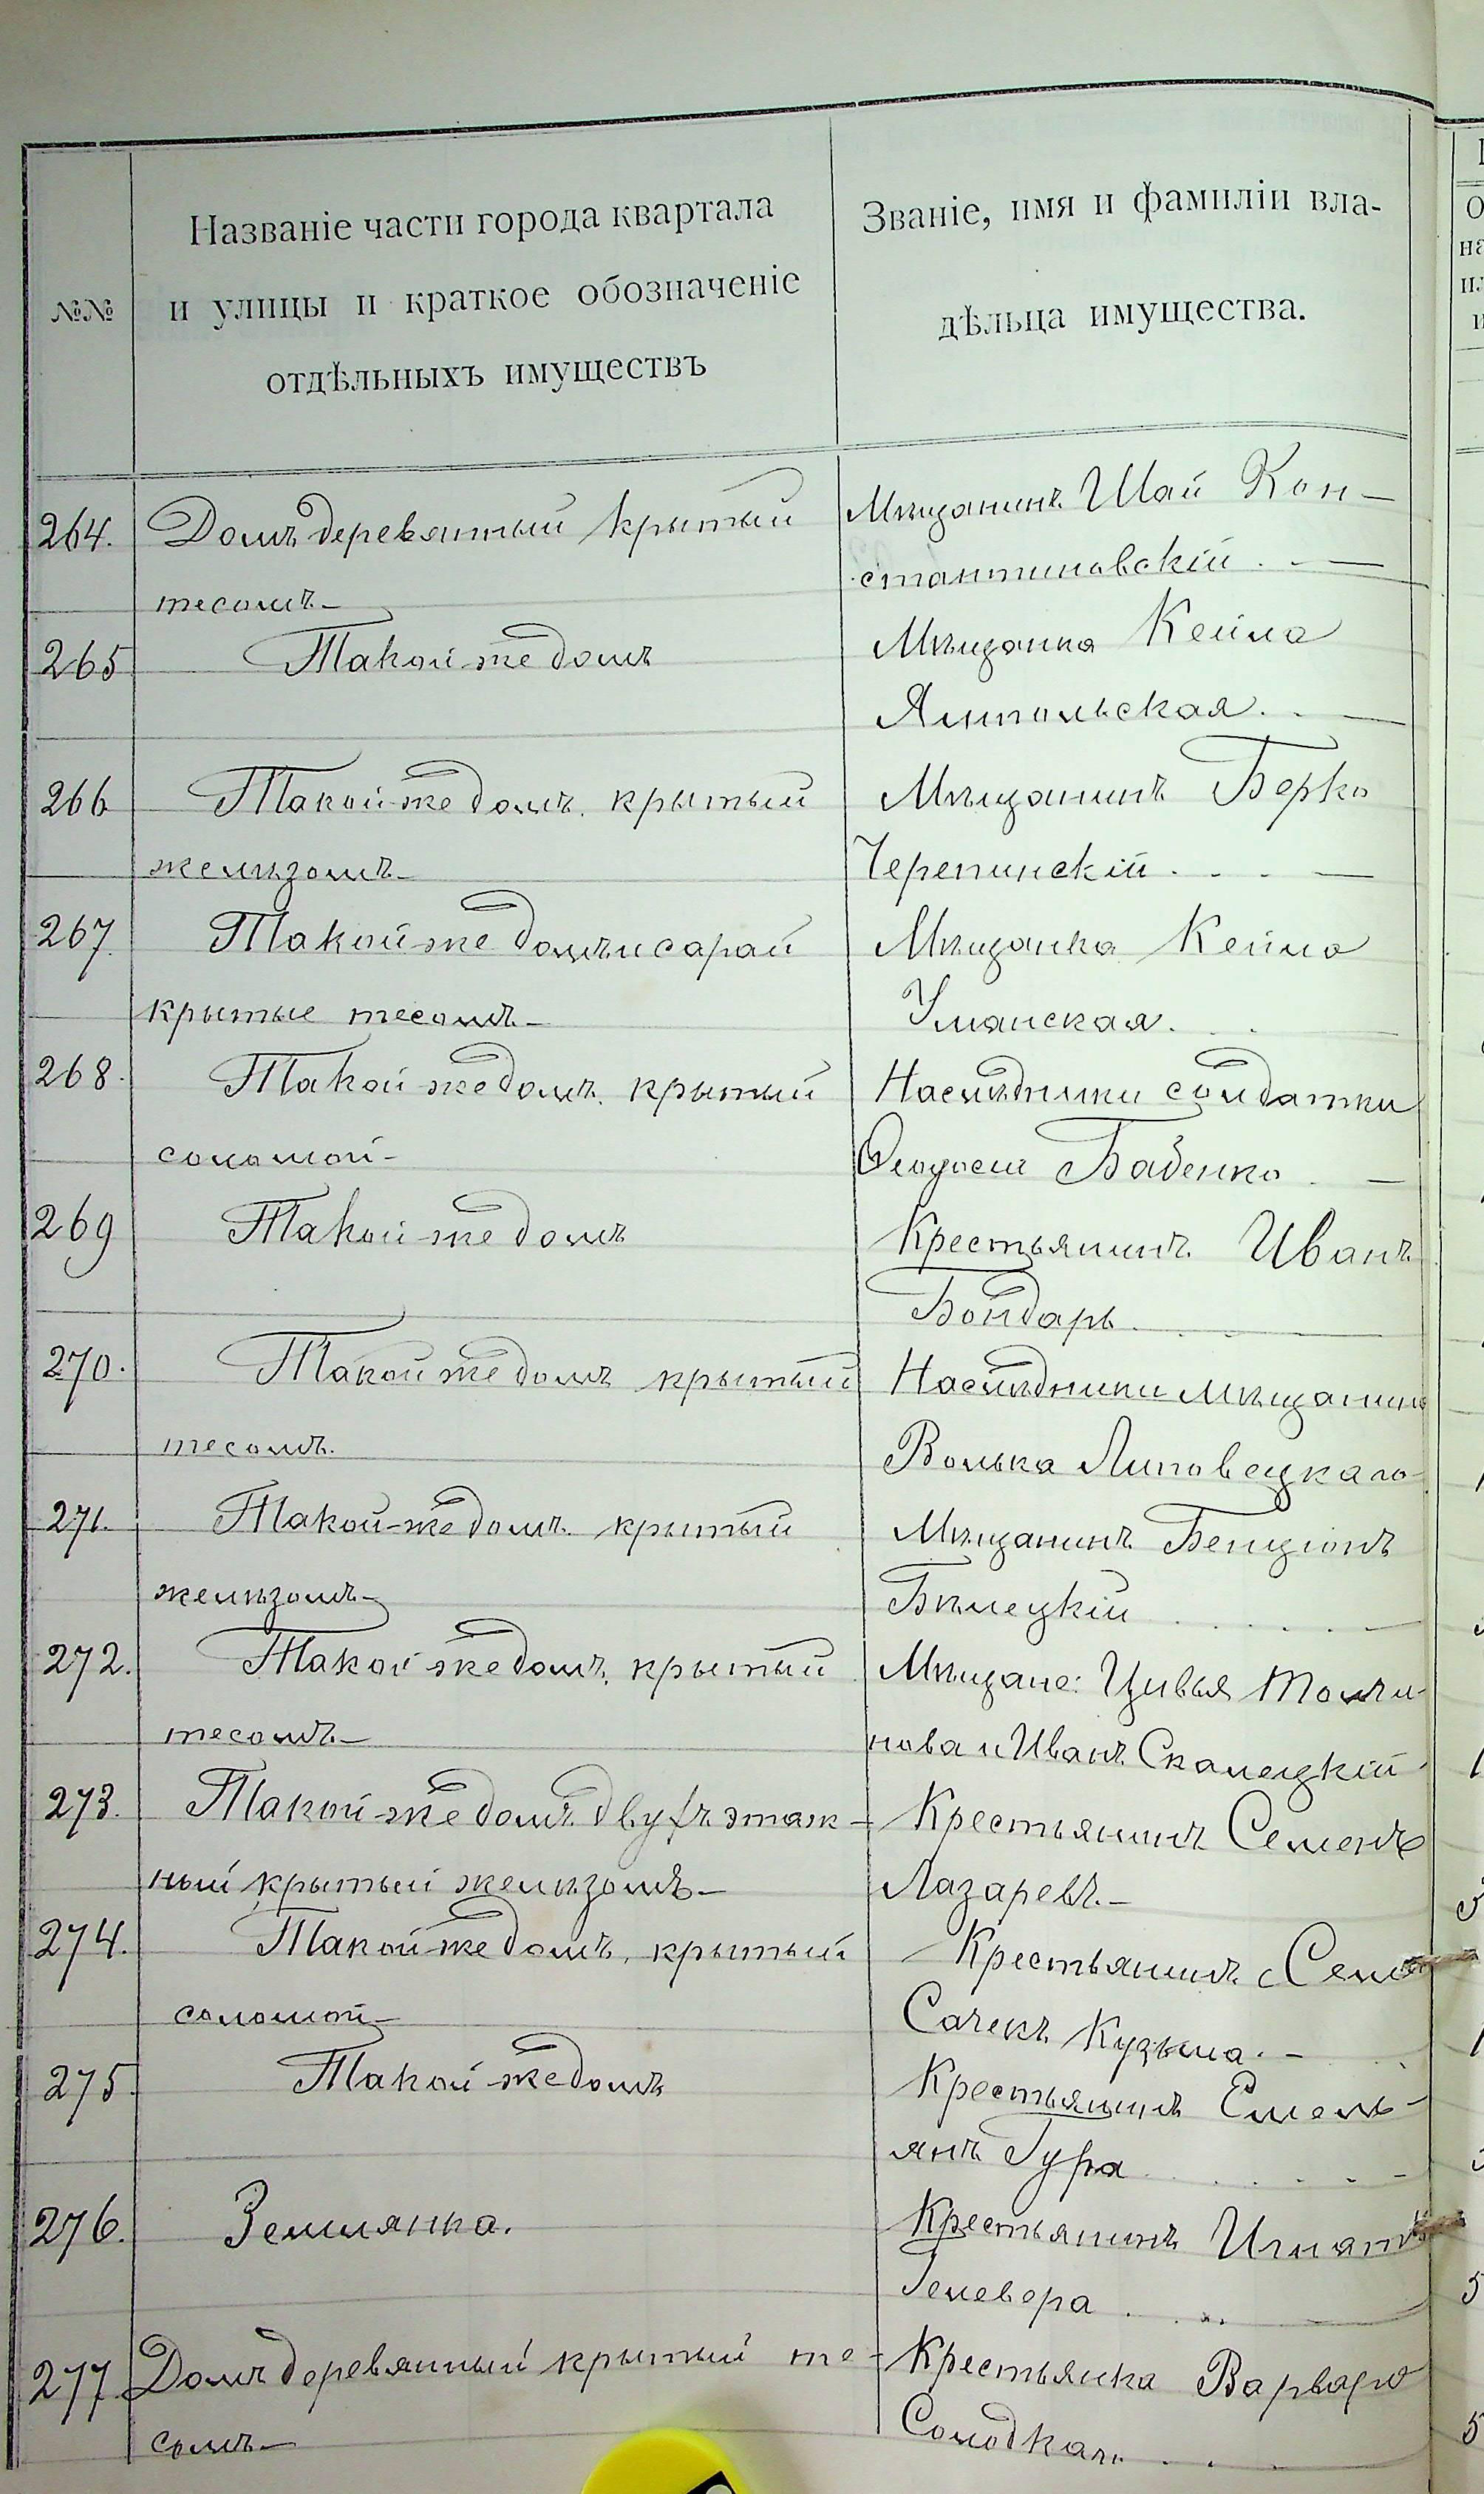 №№
Названіе части города квартала
и улицы и краткое обозначеніе
отдѣльныхъ имуществъ
Званіе, имя и фамиліи вла-
дѣльца имущества.
264. Домъ деревянный крытый
тесомъ
Мѣщанинъ Шай Кон-
стантиновскій
265 Такой-же домъ
Мѣщанка Кейла
Ямпольская
266 Такой-же домъ крытый
желѣзомъ
Мѣщанинъ Берко
Черепинскій
267. Такой-же домъ и сарай
крытые тесомъ
Мѣщанка Кейла
Уманская
268. Такой-же домъ крытый
соломой
Наслѣдники солдатки
Бабенко
269 Такой-же домъ
Крестьянинъ Иванъ
Бондарь
270. Такой же домъ крытый
тесомъ.
Наслѣдники мѣщанина
Волька Липовецкаго
271. Такой-же домъ крытый
желѣзомъ
Мѣщанинъ Бенціонъ
Бѣлецкій
272. Такой же домъ, крытый
тесомъ
Мѣщане: Цивья Толчи-
нова и Иванъ Скалецкій
273. Такой-же домъ двухъ этаж-
ный крытый желѣзомъ
Крестьянинъ Семенъ
Лазаревъ.
274. Такой-же домъ, крытый
соломой
Крестьянинъ
Сачекъ Кузьма.
275. Такой-же домъ
Крестьянинъ Емель-
янъ Гура
276. Землянка.
Крестьянинъ Игнатъ
Гелевера
277 Домъ деревянный крытый те-
сомъ
Крестьянка Варвара
Солодкая